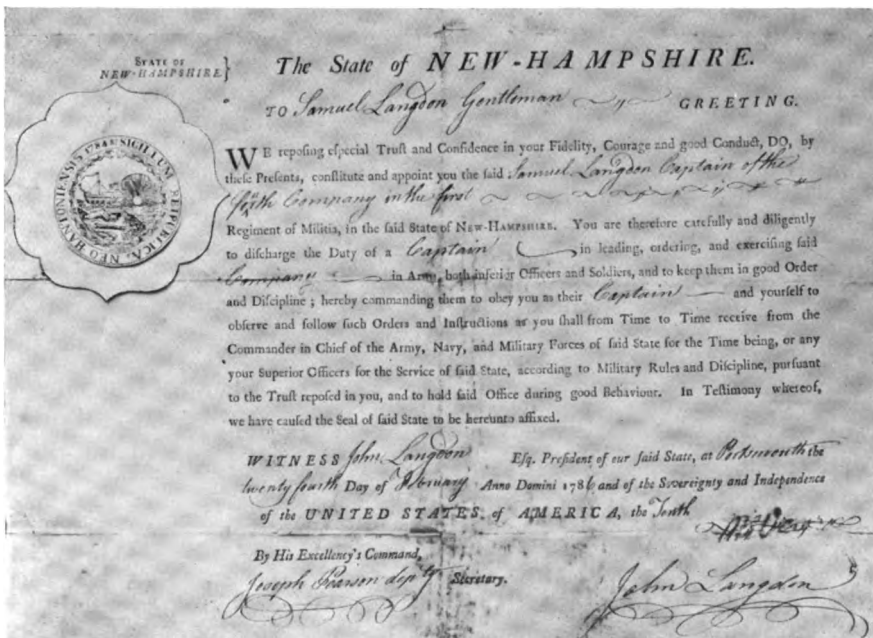 STATE OF
NEW-HAMPSHIRE }
The State of NEW-HAMPSHIRE.
TO Samuel Langdon Gentleman GREETING.
SIGILLUM REIPUBLICÆ NEO HANTONIENSIS 1784
WE reposing especial Trust and Confidence in your Fidelity, Courage and good Conduct, DO, by
these Presents, constitute and appoint you the said Samuel Langdon Captain of the
Company in the first
Regiment of Militia, in the said State of NEW-HAMPSHIRE. You are therefore carefully and diligently
to discharge the Duty of a Captain in leading, ordering, and exercising said
Company in Arms, both inferior Officers and Soldiers, and to keep them in good Order
and Discipline ; hereby commanding them to obey you as their Captain and yourself to
observe and follow such Orders and Instructions as you shall from Time to Time receive from the
Commander in Chief of the Army, Navy, and Military Forces of said State for the Time being, or any
your Superior Officers for the Service of said State, according to Military Rules and Discipline, pursuant
to the Trust reposed in you, and to hold said Office during good Behaviour. In Testimony whereof,
we have caused the Seal of said State to be hereunto affixed.
WITNESS John Langdon Esq. President of our said State, at Portsmouth the
twenty fourth Day of February Anno Domini 1786 and of the Sovereignty and Independence
of the UNITED STATES of AMERICA, the Tenth
By His Excellency's Command,
Joseph Pearson depty Secretary.
John Langdon